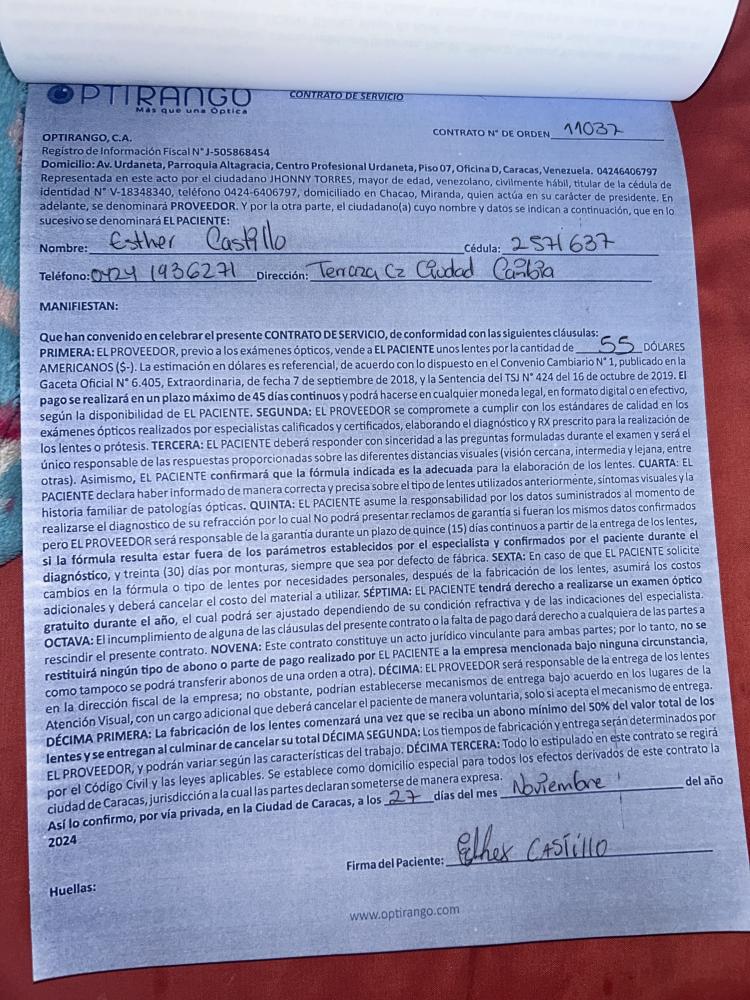 OPTIRANGO
Más que una Óptica
CONTRATO DE SERVICIO
CONTRATO N° DE ORDEN 11037
OPTIRANGO, C.A.
Registro de Información Fiscal N° J-505868454
Domicilio: Av. Urdaneta, Parroquia Altagracia, Centro Profesional Urdaneta, Piso 07, Oficina D, Caracas, Venezuela. 04246406797
Representada en este acto por el ciudadano JHONNY TORRES, mayor de edad, venezolano, civilmente hábil, titular de la cédula de
identidad N° V-18348340, teléfono 0424-6406797, domiciliado en Chacao, Miranda, quien actúa en su carácter de presidente. En
adelante, se denominará PROVEEDOR. Y por la otra parte, el ciudadano(a) cuyo nombre y datos se indican a continuación, que en lo
sucesivo se denominará EL PACIENTE:
Nombre: Esther Castillo Cédula: 2571637
Teléfono: 0424 1936271 Dirección: Terraza Ciudad
MANIFIESTAN:
Que han convenido en celebrar el presente CONTRATO DE SERVICIO, de conformidad con las siguientes cláusulas:
PRIMERA: EL PROVEEDOR, previo a los exámenes ópticos, vende a EL PACIENTE unos lentes por la cantidad de 55 DÓLARES
AMERICANOS ($-). La estimación en dólares es referencial, de acuerdo con lo dispuesto en el Convenio Cambiario N° 1, publicado en la
Gaceta Oficial N° 6.405, Extraordinaria, de fecha 7 de septiembre de 2018, y la Sentencia del TSJ N° 424 del 16 de octubre de 2019. El
pago se realizará en un plazo máximo de 45 días continuos y podrá hacerse en cualquier moneda legal, en formato digital o en efectivo,
según la disponibilidad de EL PACIENTE. SEGUNDA: EL PROVEEDOR se compromete a cumplir con los estándares de calidad en los
exámenes ópticos realizados por especialistas calificados y certificados, elaborando el diagnóstico y RX prescrito para la realización de
los lentes o prótesis. TERCERA: EL PACIENTE deberá responder con sinceridad a las preguntas formuladas durante el examen y será el
único responsable de las respuestas proporcionadas sobre las diferentes distancias visuales (visión cercana, intermedia y lejana, entre
otras). Asimismo, EL PACIENTE confirmará que la fórmula indicada es la adecuada para la elaboración de los lentes. CUARTA: EL
PACIENTE declara haber informado de manera correcta y precisa sobre el tipo de lentes utilizados anteriormente, síntomas visuales y la
historia familiar de patologías ópticas. QUINTA: EL PACIENTE asume la responsabilidad por los datos suministrados al momento de
realizarse el diagnostico de su refracción por lo cual No podrá presentar reclamos de garantía si fueran los mismos datos confirmados
pero EL PROVEEDOR será responsable de la garantía durante un plazo de quince (15) días continuos a partir de la entrega de los lentes,
si la fórmula resulta estar fuera de los parámetros establecidos por el especialista y confirmados por el paciente durante el
diagnóstico, y treinta (30) días por monturas, siempre que sea por defecto de fábrica. SEXTA: En caso de que EL PACIENTE solicite
cambios en la fórmula o tipo de lentes por necesidades personales, después de la fabricación de los lentes, asumirá los costos
adicionales y deberá cancelar el costo del material a utilizar. SÉPTIMA: EL PACIENTE tendrá derecho a realizarse un examen óptico
gratuito durante el año, el cual podrá ser ajustado dependiendo de su condición refractiva y de las indicaciones del especialista.
OCTAVA: El incumplimiento de alguna de las cláusulas del presente contrato o la falta de pago dará derecho a cualquiera de las partes a
rescindir el presente contrato. NOVENA: Este contrato constituye un acto jurídico vinculante para ambas partes; por lo tanto, no se
restituirá ningún tipo de abono o parte de pago realizado por EL PACIENTE a la empresa mencionada bajo ninguna circunstancia,
como tampoco se podrá transferir abonos de una orden a otra). DÉCIMA: EL PROVEEDOR será responsable de la entrega de los lentes
en la dirección fiscal de la empresa; no obstante, podrían establecerse mecanismos de entrega bajo acuerdo en los lugares de la
Atención Visual, con un cargo adicional que deberá cancelar el paciente de manera voluntaria, solo si acepta el mecanismo de entrega.
DÉCIMA PRIMERA: La fabricación de los lentes comenzará una vez que se reciba un abono mínimo del 50% del valor total de los
lentes y se entregan al culminar de cancelar su total DÉCIMA SEGUNDA: Los tiempos de fabricación y entrega serán determinados por
EL PROVEEDOR, y podrán variar según las características del trabajo. DÉCIMA TERCERA: Todo lo estipulado en este contrato se regirá
por el Código Civil y las leyes aplicables. Se establece como domicilio especial para todos los efectos derivados de este contrato la
ciudad de Caracas, jurisdicción a la cual las partes declaran someterse de manera expresa.
Así lo confirmo, por vía privada, en la Ciudad de Caracas, a los 27 días del mes Noviembre del año
2024
Firma del Paciente: Esther CASTILLO
Huellas:
www.optirango.com